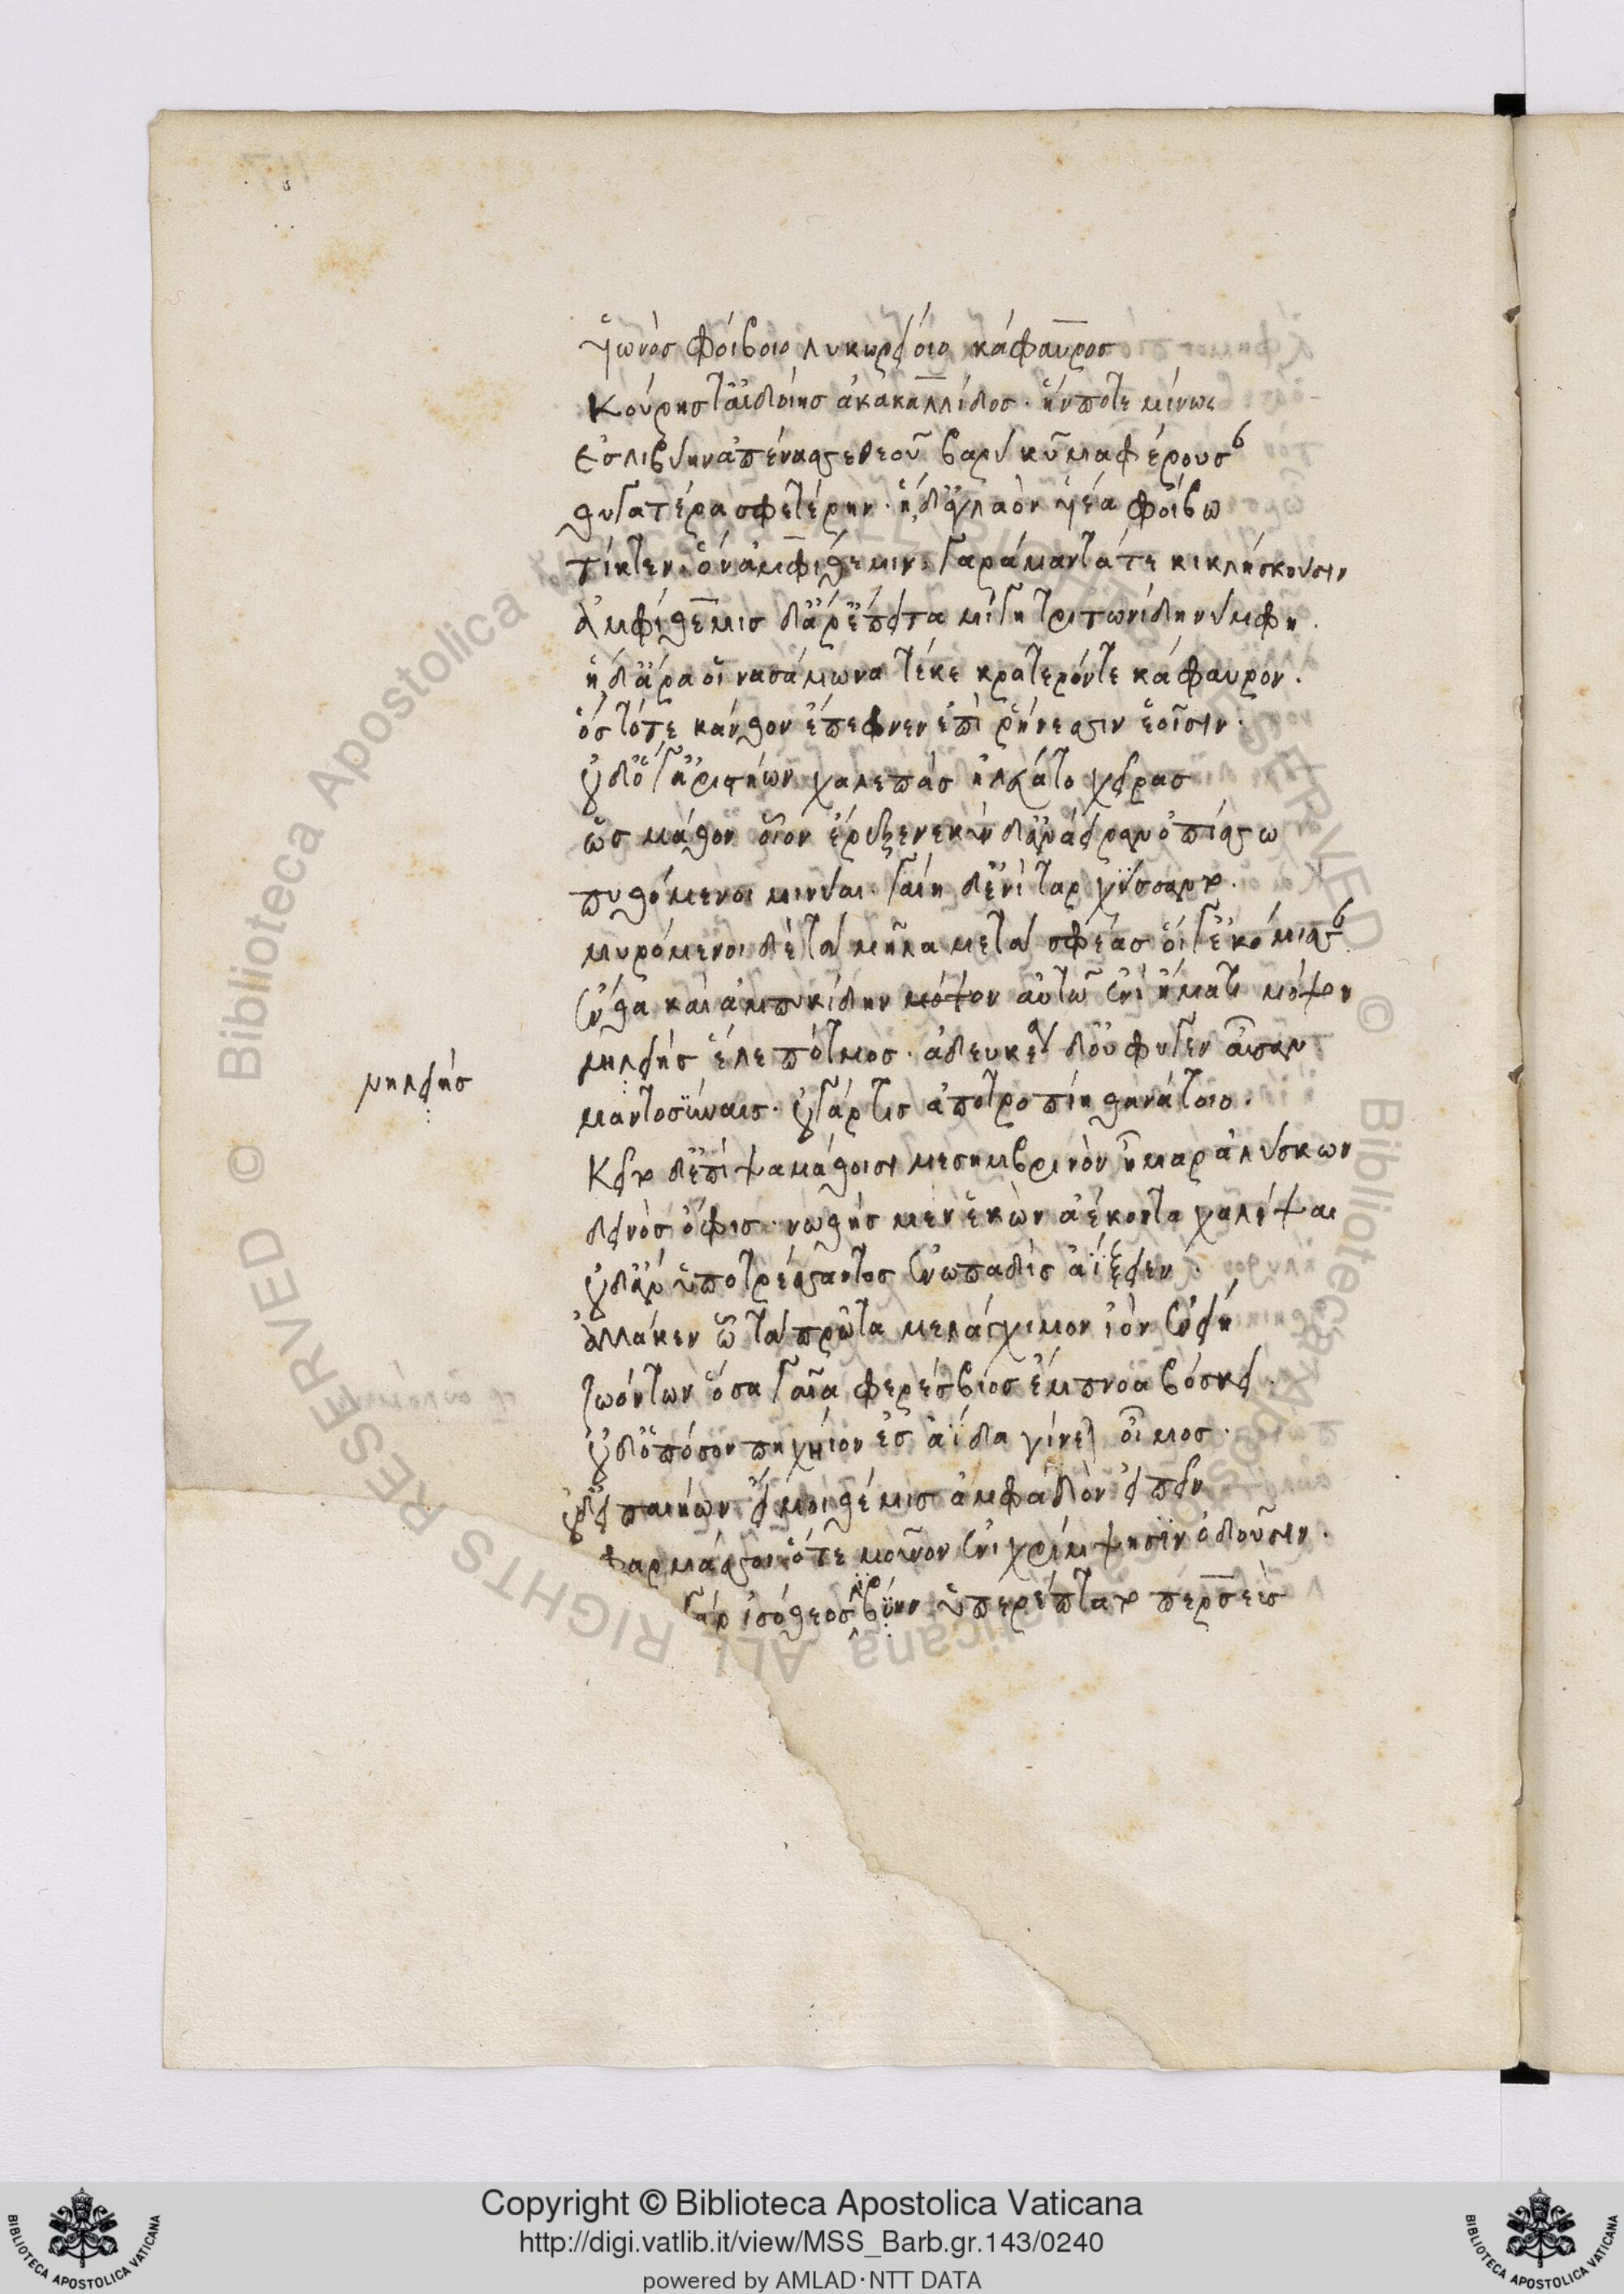 υἱωνὸς φοίβοιο λυκωρείοιο κάφαυρος
κούρης τ' αἰδοίης ἀκακαλλίδος· ἥν ποτε μίνως
ἐς λιβύην ἀπένασσε θεοῦ βαρὺ κῦμα φέρουσαν
θυγατέρα σφετέρην· ἡ δ' ἀγλαὸν υἱέα φοίβω
τίκτεν· ὃν ἀμφίθεμιν, γαράμαντά τε κικλήσκουσιν
ἀμφίθεμις δ' ἄρ' ἔπειτα μίγη τριτωνίδι νύμφη.
ἡ δ' ἄρα οἱ νασάμωνα τέκε κρατερόν τε κάφαυρον.
ὃς τότε κάνθον ἔπεφνεν ἐπὶ ῥήνεσσιν ἑοῖσιν·
οὐδ' ὅγ' ἀριστήων χαλεπὰς ἠλεύατο χεῖρας
ὡς μάθον οἷον ἔρεξε νέκυν δ' ἀνάειραν ὀπίσσω
πυθόμενοι μινύαι· γαίη δ' ἐνὶ ταρχύσαντο.
μυρόμενοι δὲ τὰ μῆλα μετὰ σφέας οἵ γ' ἐκόμισσαν
ἔνθα καὶ ἀμπυκίδην μόψον αὐτῶ ἐνὶ ἤματι μόψον
μηλειὴς ἕλε πότμος· ἀδευκέα δ' οὐ φύγεν αἶσαν
μηλειὴς
μαντοσύναις· οὐ γάρ τις ἀποτροπίη θανάτοιο.
κεῖτο δ' ἐπὶ ψαμάθοισι μεσημβρινὸν ἦμαρ ἀλύσκων
δεινὸς ὄφις· νωθὴς μὲν ἑκὼν ἀέκοντα χαλέψαι
οὐδ' ἂν ὑποτρέσσαντος ἐνωπαδὶς ἀΐξειεν·
ἀλλά κεν ᾧ τὰ πρῶτα μελάγχιμον ἰὸν ἐνείη
ζωόντων ὅσα γαῖα φερέσβιος ἔμπνοα βόσκει·
οὐδ' ὁπόσον πήχυιον ἐς ἀΐδα γίνεται οἶμος·
οὐδ' εἰ παιήων εἴ μοι θέμις ἀμφαδὸν εἰπεῖν
φαρμάσσοι ὅτε μοῦνον ἐνιχρίμψησιν ὀδοῦσιν.
γὰρ ἰσόθεος λιβύην ὑπερέπτατο περσεὺς